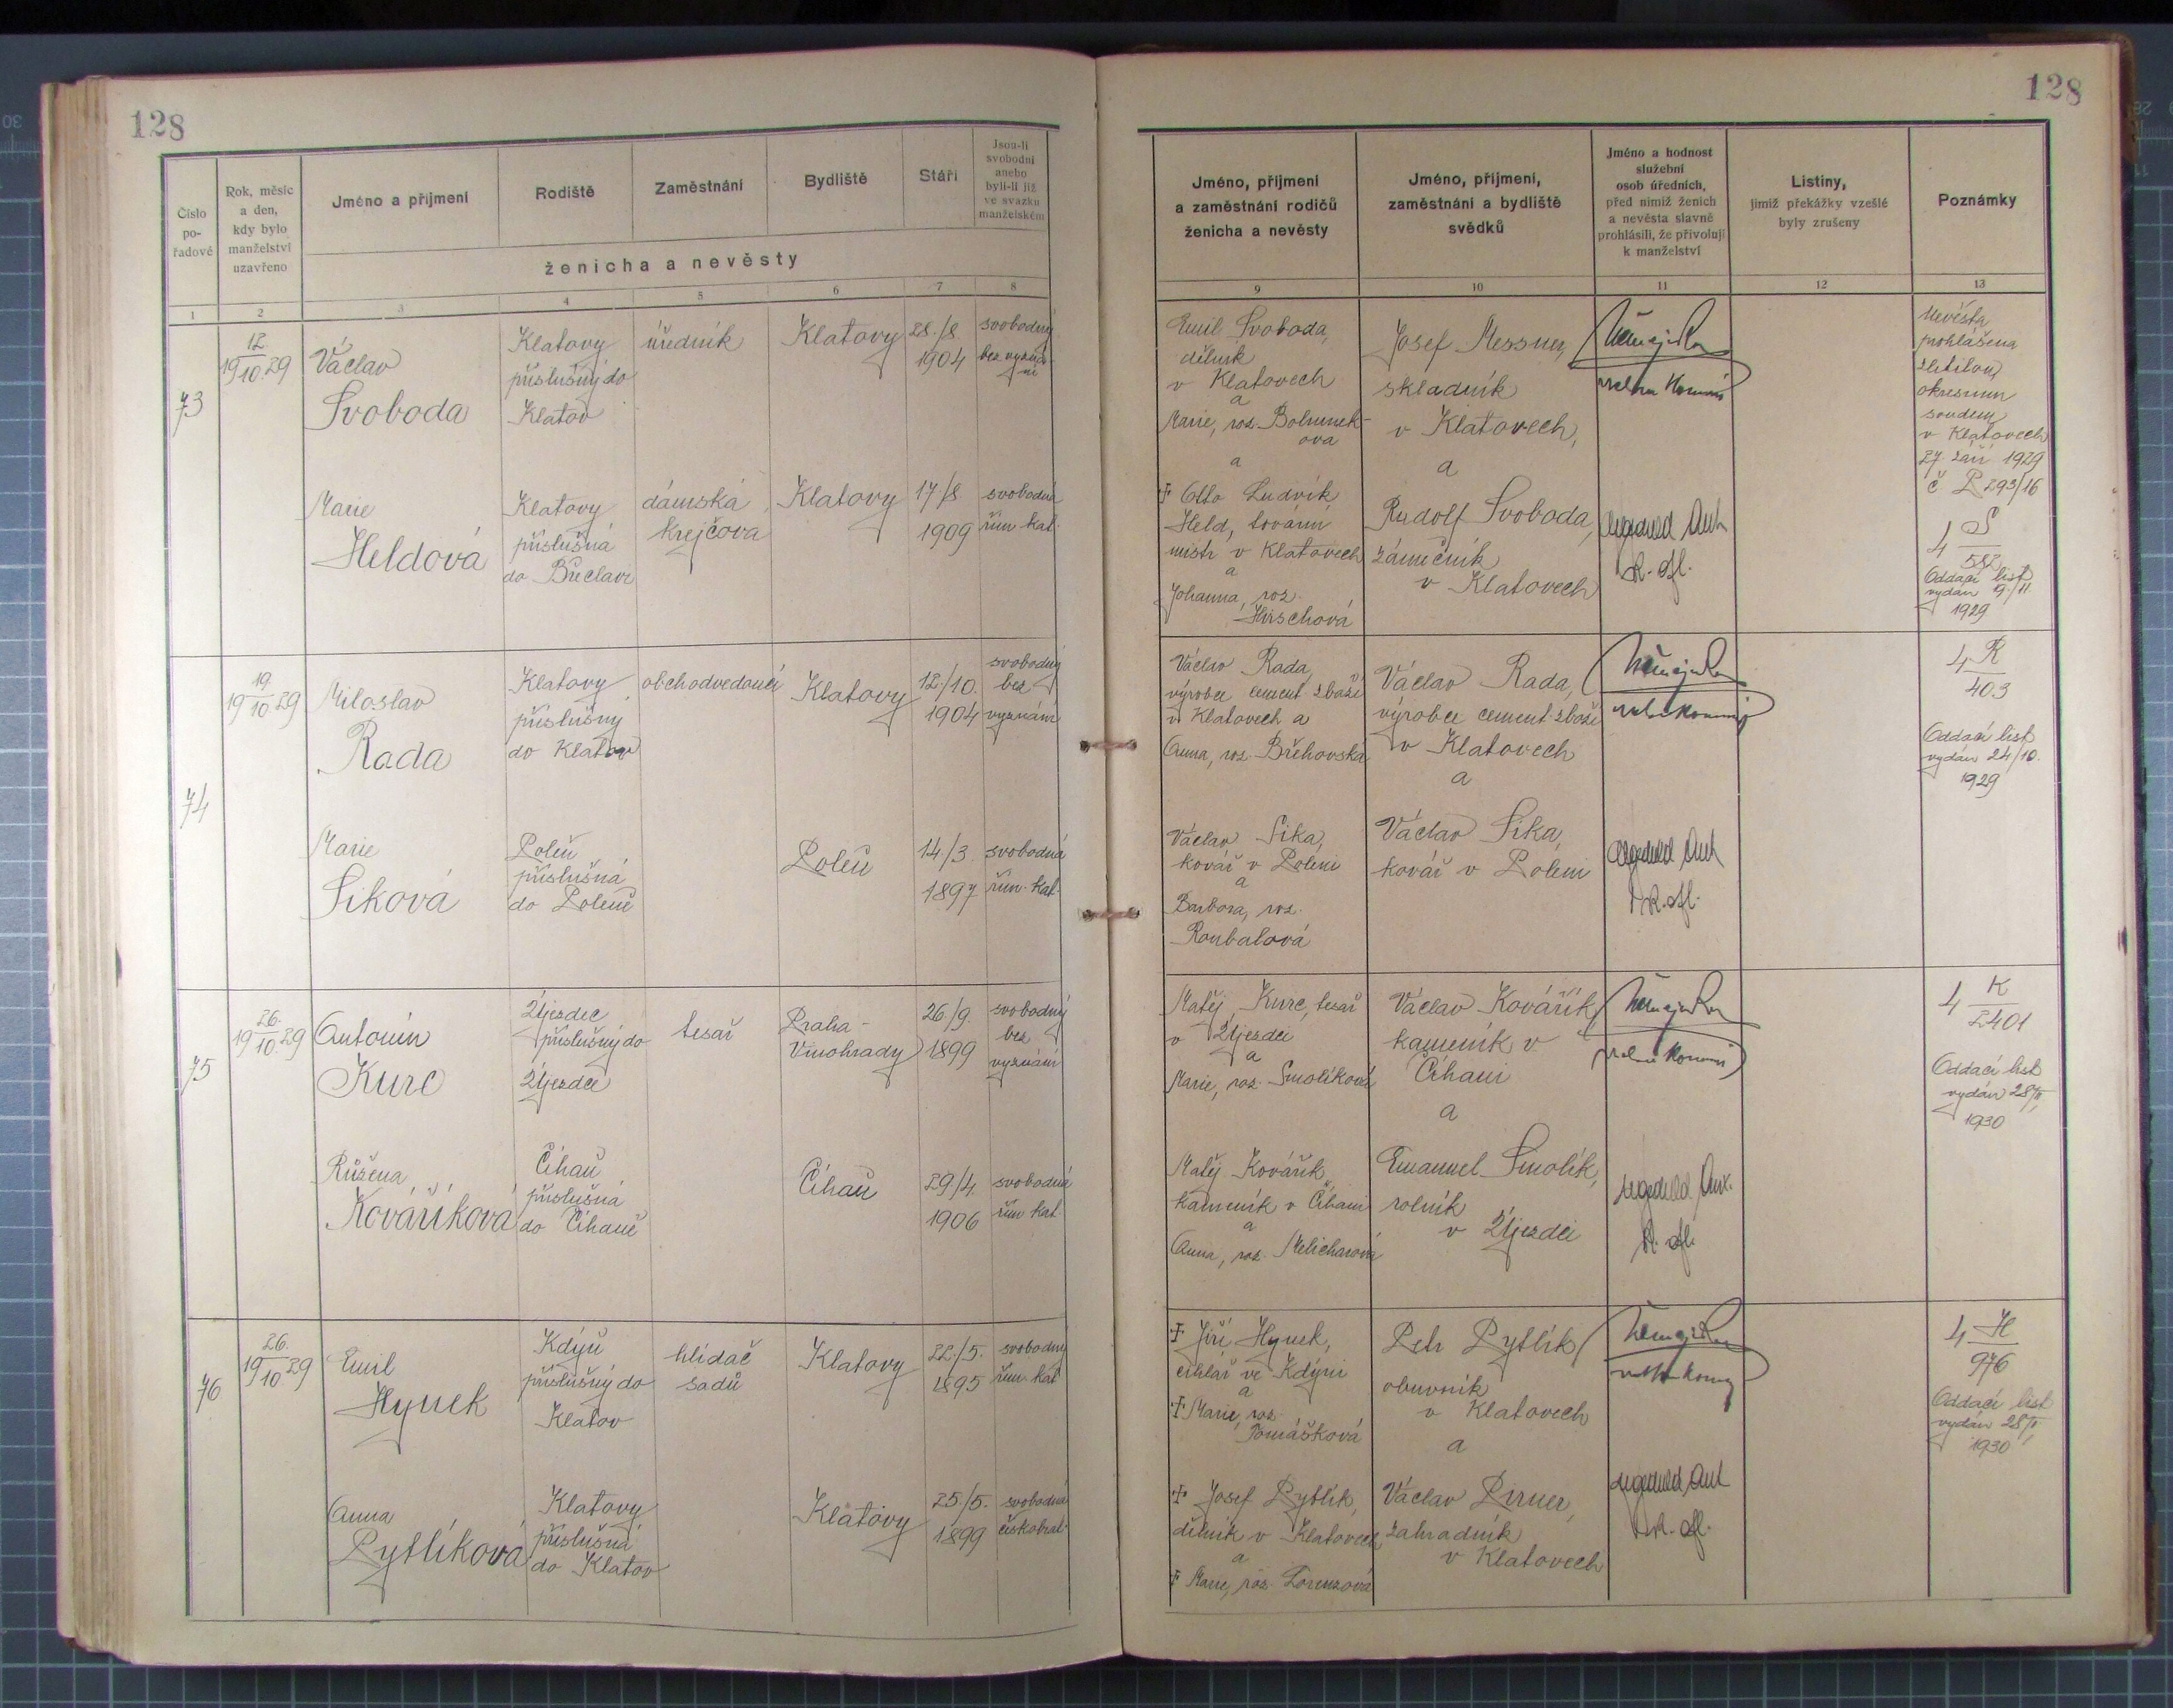 128
128
Číslo
po-
řadové
Rok, měsíc
a den,
kdy bylo
manželství
uzavřeno
Jméno a příjmení
Rodiště
Zaměstnání
Bydliště
Stáří
Jsou-li
svobodni
anebo
byli-li již
ve svazku
manželském
ženicha a nevěsty
Jméno, příjmení
a zaměstnání rodičů
ženicha a nevěsty
Jméno, příjmení,
zaměstnání a bydliště
svědků
Jméno a hodnost
služební
osob úředních,
před nimiž ženich
a nevěsta slavně
prohlásili, že přivolují
k manželství
Listiny,
jimiž překážky vzešlé
byly zrušeny
Poznámky
1 2 3 4 5 6 7 8 9 10 11 12 13
73
12
19 10. 29
Václav
Svoboda
Klatovy
příslušný do
Klatov
úředník
Klatovy
28./8.
1904
svobodný
bez vyzná-
ní
Marie
Heldová
Klatovy
příslušná
do Břeclavi
dámská
krejčová
Klatovy
17/8
1909
svobodná
řím. kat.
Emil Svoboda,
dělník
v Klatovech
a
Marie, roz.
ova
a
† Otto Ludvík
Held, tovární
mistr v Klatovech
a
Johanna, roz.
Hirschová
Josef Messner,
skladník
v Klatovech,
a
Rudolf Svoboda,
zámečník
v Klatovech
Nevěsta
prohlášena
zletilou
okresním
soudem
v Klatovech
27. září 1929
č P 293/16
4 S
582
Oddací list
vydán 9./11.
1929
74
19
19 10 29
Miloslav
Rada
Klatovy
příslušný
do Klatov
obchodvedoucí
Klatovy
12./10.
1904
svobodný
bez
vyznání
Marie
Siková
Poleň
příslušná
do Poleně
Poleň
14./3.
1897
svobodná
řím. kat.
Václav Rada,
výrobce cement. zboží
v Klatovech a
Anna, roz. Břehovská
Václav Sika,
kovář v Poleni
a
Barbora, roz.
Roubalová
Václav Rada,
výrobce cement. zboží
v Klatovech
a
Václav Sika,
kovář v Poleni
4 R
403
Oddací list
vydán 24/10.
1929
75
26.
19 10. 29
Antonín
Kurc
Újezdec
příslušný do
Újezdce
tesař
Praha-
Vinohrady
26./9.
1899
svobodný
bez
vyznání
Růžena
Kováříková
Číhaň
příslušná
do Číhaně
Číhaň
29/4.
1906
svobodná
řím kat
Matěj Kurc, tesař
v Újezdci
a
Marie, roz. Smolíková
Matěj Kovářík,
kameník v Číhani
a
Anna, roz. Melicharová
Václav Kovářík,
kameník v
Číhani
a
Emanuel Smolík,
rolník
v Újezdci
4 K
2401
Oddací list
vydán 28/II
1930
76
26.
19 10 29
Emil
Hynek
Kdýň
příslušný do
Klatov
hlídač
sadů
Klatovy
22./5.
1895
svobodný
řím. kat
Anna
Pytlíková
Klatovy
příslušná
do Klatov
Klatovy
25./5.
1899
svobodná
českobrat.
† Jiří Hynek,
cihlář ve Kdýni
a
† Marie, roz.
Tomášková
† Josef Pytlík,
dělník v Klatovech
a
† Marie, roz. Lorenzová
Petr Pytlík
obuvník
v Klatovech
a
Václav Pirner,
zahradník
v Klatovech
4 H
976
Oddací list
vydán 28/II
1930